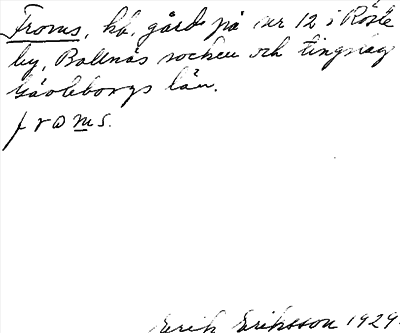 Froms, hb. gård på nr 12 i Röste
by, Bollnäs socken och tingslag
Gävleborgs län.
froms.
Erik Eriksson 1929.